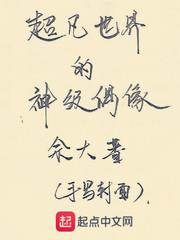 超凡世界
的
神级偶像
佘大聋
(手写封面)
起 起点中文网